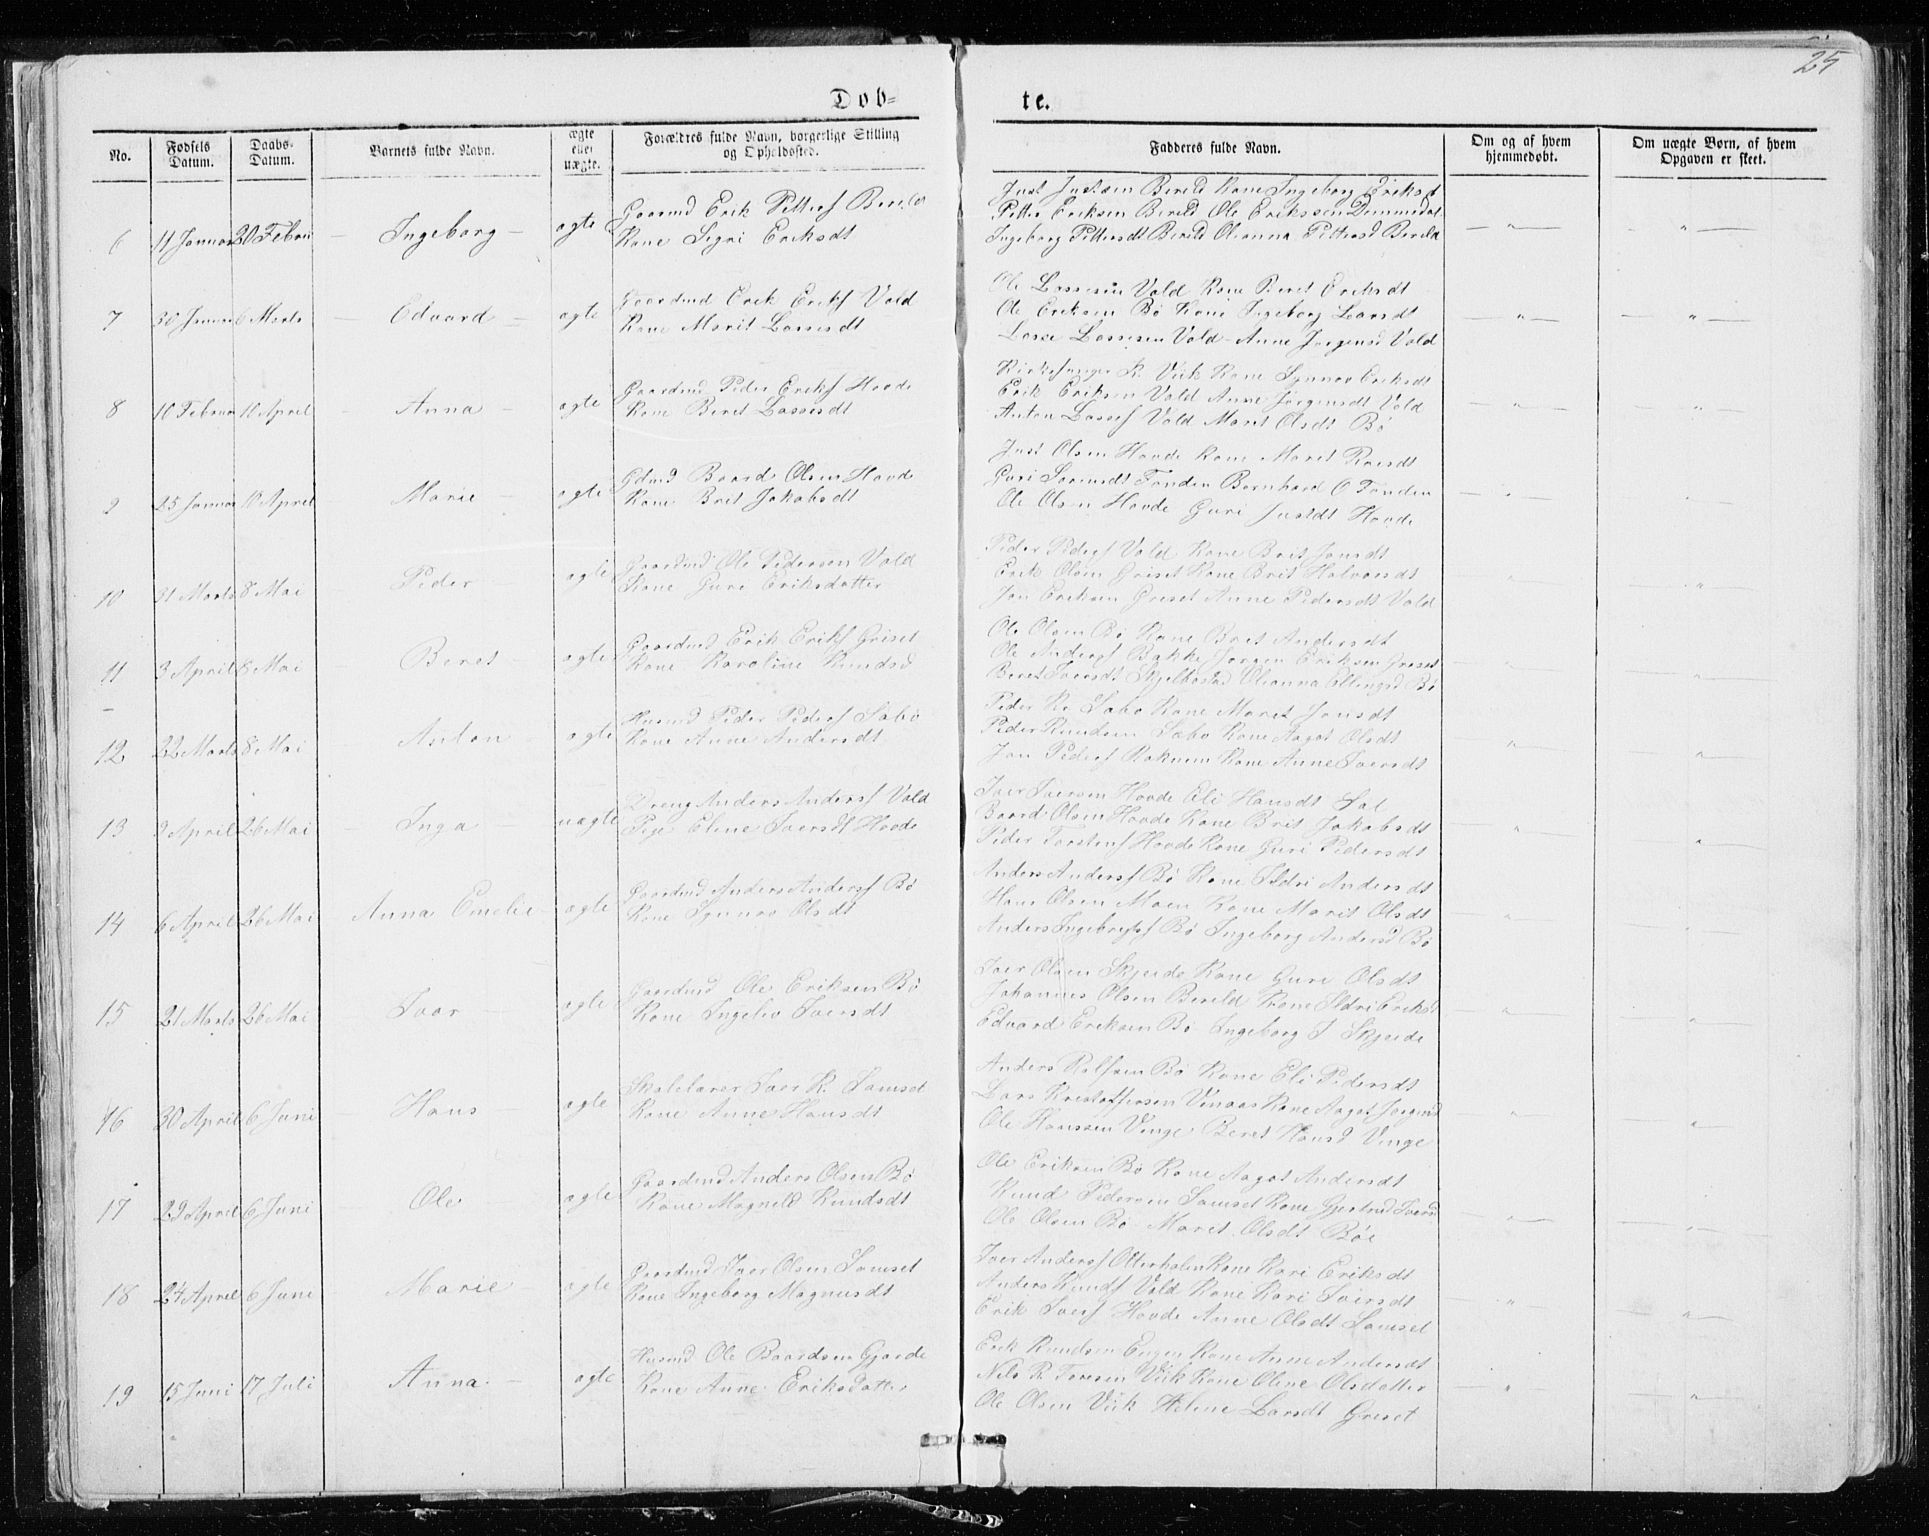 25
Døb= te.
No. Fødsels Datum. Daabs-Datum. Barnets fulde Navn. ægte eller uægte. Forældres fulde Navn, borgerlige Stilling og Opholdssted. Fadderes fulde Navn. Om og af hvem hjemmedøbt. Om uægte Børn, af hvem Opgaven er skeet.
Just Justsen Berild Kone Ingeborg Eriksd
Gaardmd Erik Pettersf Berild Petter Eriksen Berild Ole Erikssen
6 11 Januar 20 Febru — Ingeborg — ægte Kone Sigri Eriksdt Ingeborg Pettersdt Berild Olianna Pettersd Berild — " — — " —
Ole Lassesen Vold Kone Beret Eriksdt
Gaardmd Erik Eriksf Vold Ole Eriksen Bø Kone Ingeborg Larsdt
7 30 Januar 6 Marts — Edvard — ægte Kone Marit Lassesdt Lasse Lassesen Vold - Anne Jørgensd Vold — " — — " —
Kirkesanger K. Viik Kone Synnøv Eriksdt
Gaardmd Peder Eriksf Hovde Erik Eriksen Vold Anne Jørgensdt Vold
8 10 Februar 11 April — Anna — ægte Kone Beret Lassesdt Anton Lassesf Vold Marit Olsdt Bø — " — — " —
Just Olsen Hovde Kone Marit
Gdmd Baard Olsen Hovde Guri Tonden Bernhard O Tonden
9 25 Januar 11 April — Marie — ægte Kone Brit Jakobsdt Ole Olsen Hovde Guri Justdt Hovde — " — "
Peder Pedersf Vold Kone Brit Jonsdt
Gaardmd Ole Pedersen Vold Erik Olsen Griset Kone Brit Halvorsdt
10 31 Marts 8 Mai Peder ægte Kone Guri Eriksdatter Jon Eriksen Griset Anne Pedersdt Vold " — " —
Ole Olsen Bø Kone Brit Andersdt
Gaardmd Erik Eriksf Griset Ole Andersf Bakke Jørgen Eriksen Griset
11 3 April 8 Mai — Beret — ægte Kone Karoline Knudsd Beret Iversdt Skjelbostad Olianna Ellingsd Bø — " — — " —
Peder K. Sæbø Kone Marit Jonsdt
Husmd Peder Pedersf Sæbø Peder Knudsen Sæbø Kone Aagot Olsdt
12 22 Marts 8 Mai — Anton — ægte Kone Anne Andersdt Jon Pedersf Kone Anne Iversdt — " — — " —
Iver Iversen Hovde Eli Hansdt
Dreng Anders Andersf Vold Baard Olsen Hovde Kone Brit Jakobsdt
13 9 April 26 Mai — Inga — uægte Pige Eline Iversdt Hovde Peder Torstensf Hovde Kone Guri Pedersdt — " — — " —
Anders Andersf Bø Kone Ildri Andersdt
Gaardmd Anders Andersf Bø Hans Olsen Moen Kone Marit Olsdt
14 6 April 26 Mai — Anna Emelie — ægte Kone Synnøv Olsdt Anders Ingebrigtsf Bø Ingeborg Andersd Bø — " — — " —
Iver Olsen Skjeide Kone Guri Olsdt
Gaardmd Ole Eriksen Bø Johannes Olsen Berild Kone Ildri Eriksdt
15 21 Marts 26 Mai — Ivar — ægte Kone Ingeliv Iversdt Edvard Eriksen Bø Ingeborg I Skjeide — " — — " —
Anders Rolfsen Bø Kone Eli Pedersdt
Skolelærer Iver K. Samset Lars Kristoffersen Venaas Kone Aagot Jørgensd
16 30 April 6 Juni — Hans ægte Kone Anne Hansdt Ole Hanssen Vinge Beret Hansd Vinge — " — — " —
Ole Eriksen Bø Kone Aagot Andersdt
Gaardmd Anders Olsen Bø Knud Pedersen Samset Kone Gjertrud Iversd
17 29 April 6 Juni — Ole — ægte Kone Magnild Knudsdt Ole Olsen Bø Marit Olsdt Bøe — " — — " —
Iver Andersf Otterholen Kone Kari Eriksdt
Gaardmd Ivar Olsen Samset Anders Knudsf Vold Kone Kari Iversdt
18 24 April 6 Juni — Marie — ægte Kone Ingeborg Magnusdt Erik Iversf Hovde Anne Olsdt Samset — " — — " —
Erik Knudsen Engen Kone Anne Andersdt
Husmd Ole Baardsen Gjærde Nils K. Foresen Viik Kone Oline Olsdatter
19 15 Juni 17 Juli — Anna — ægte Kone Anne Eriksdatter Ole Olsen Viik Heline Larsdt Griset — " — — " —